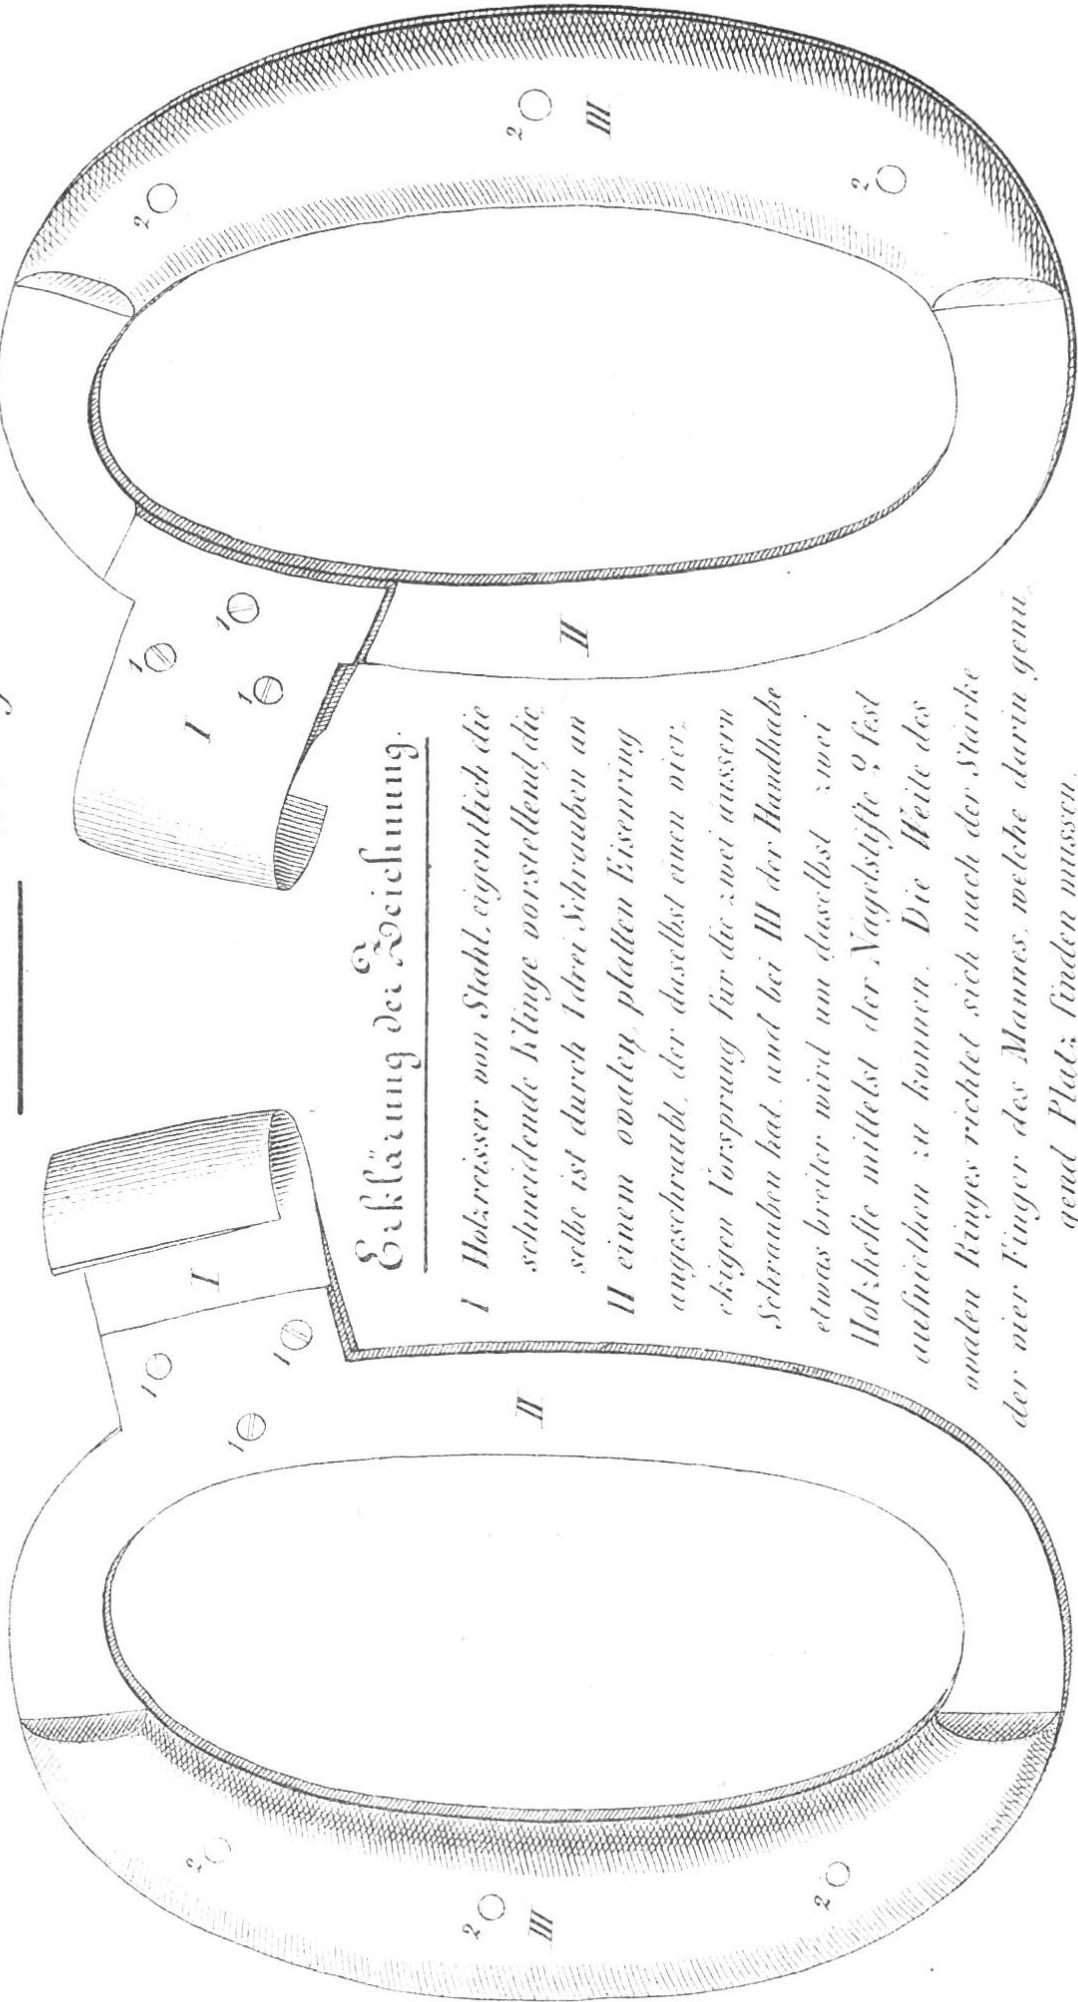 Erklärung der Zeichnung.
I Holzreisser von Stahl, eigentlich die
schneidende Klinge vorstellend, die,
selbe ist durch 1 drei Schrauben an
II einem ovalen, platten Eisenring
angeschraubt, der daselbst einen vier,
ekigen Vorsprung für die zwei äussern
Schrauben hat, und bei III der Handhabe
etwas breiter wird um daselbst zwei
Holzhefte mittelst der Nagelstifte 2 fest
aufniethen zu können. Die Weite des
ovalen Ringes richtet sich nach der Stärke
der vier Finger des Mannes, welche darin genü,
gend Platz finden müssen.
I
1
1
1
II
2
2
III
2
I
1
1
1
II
2
2
III
2